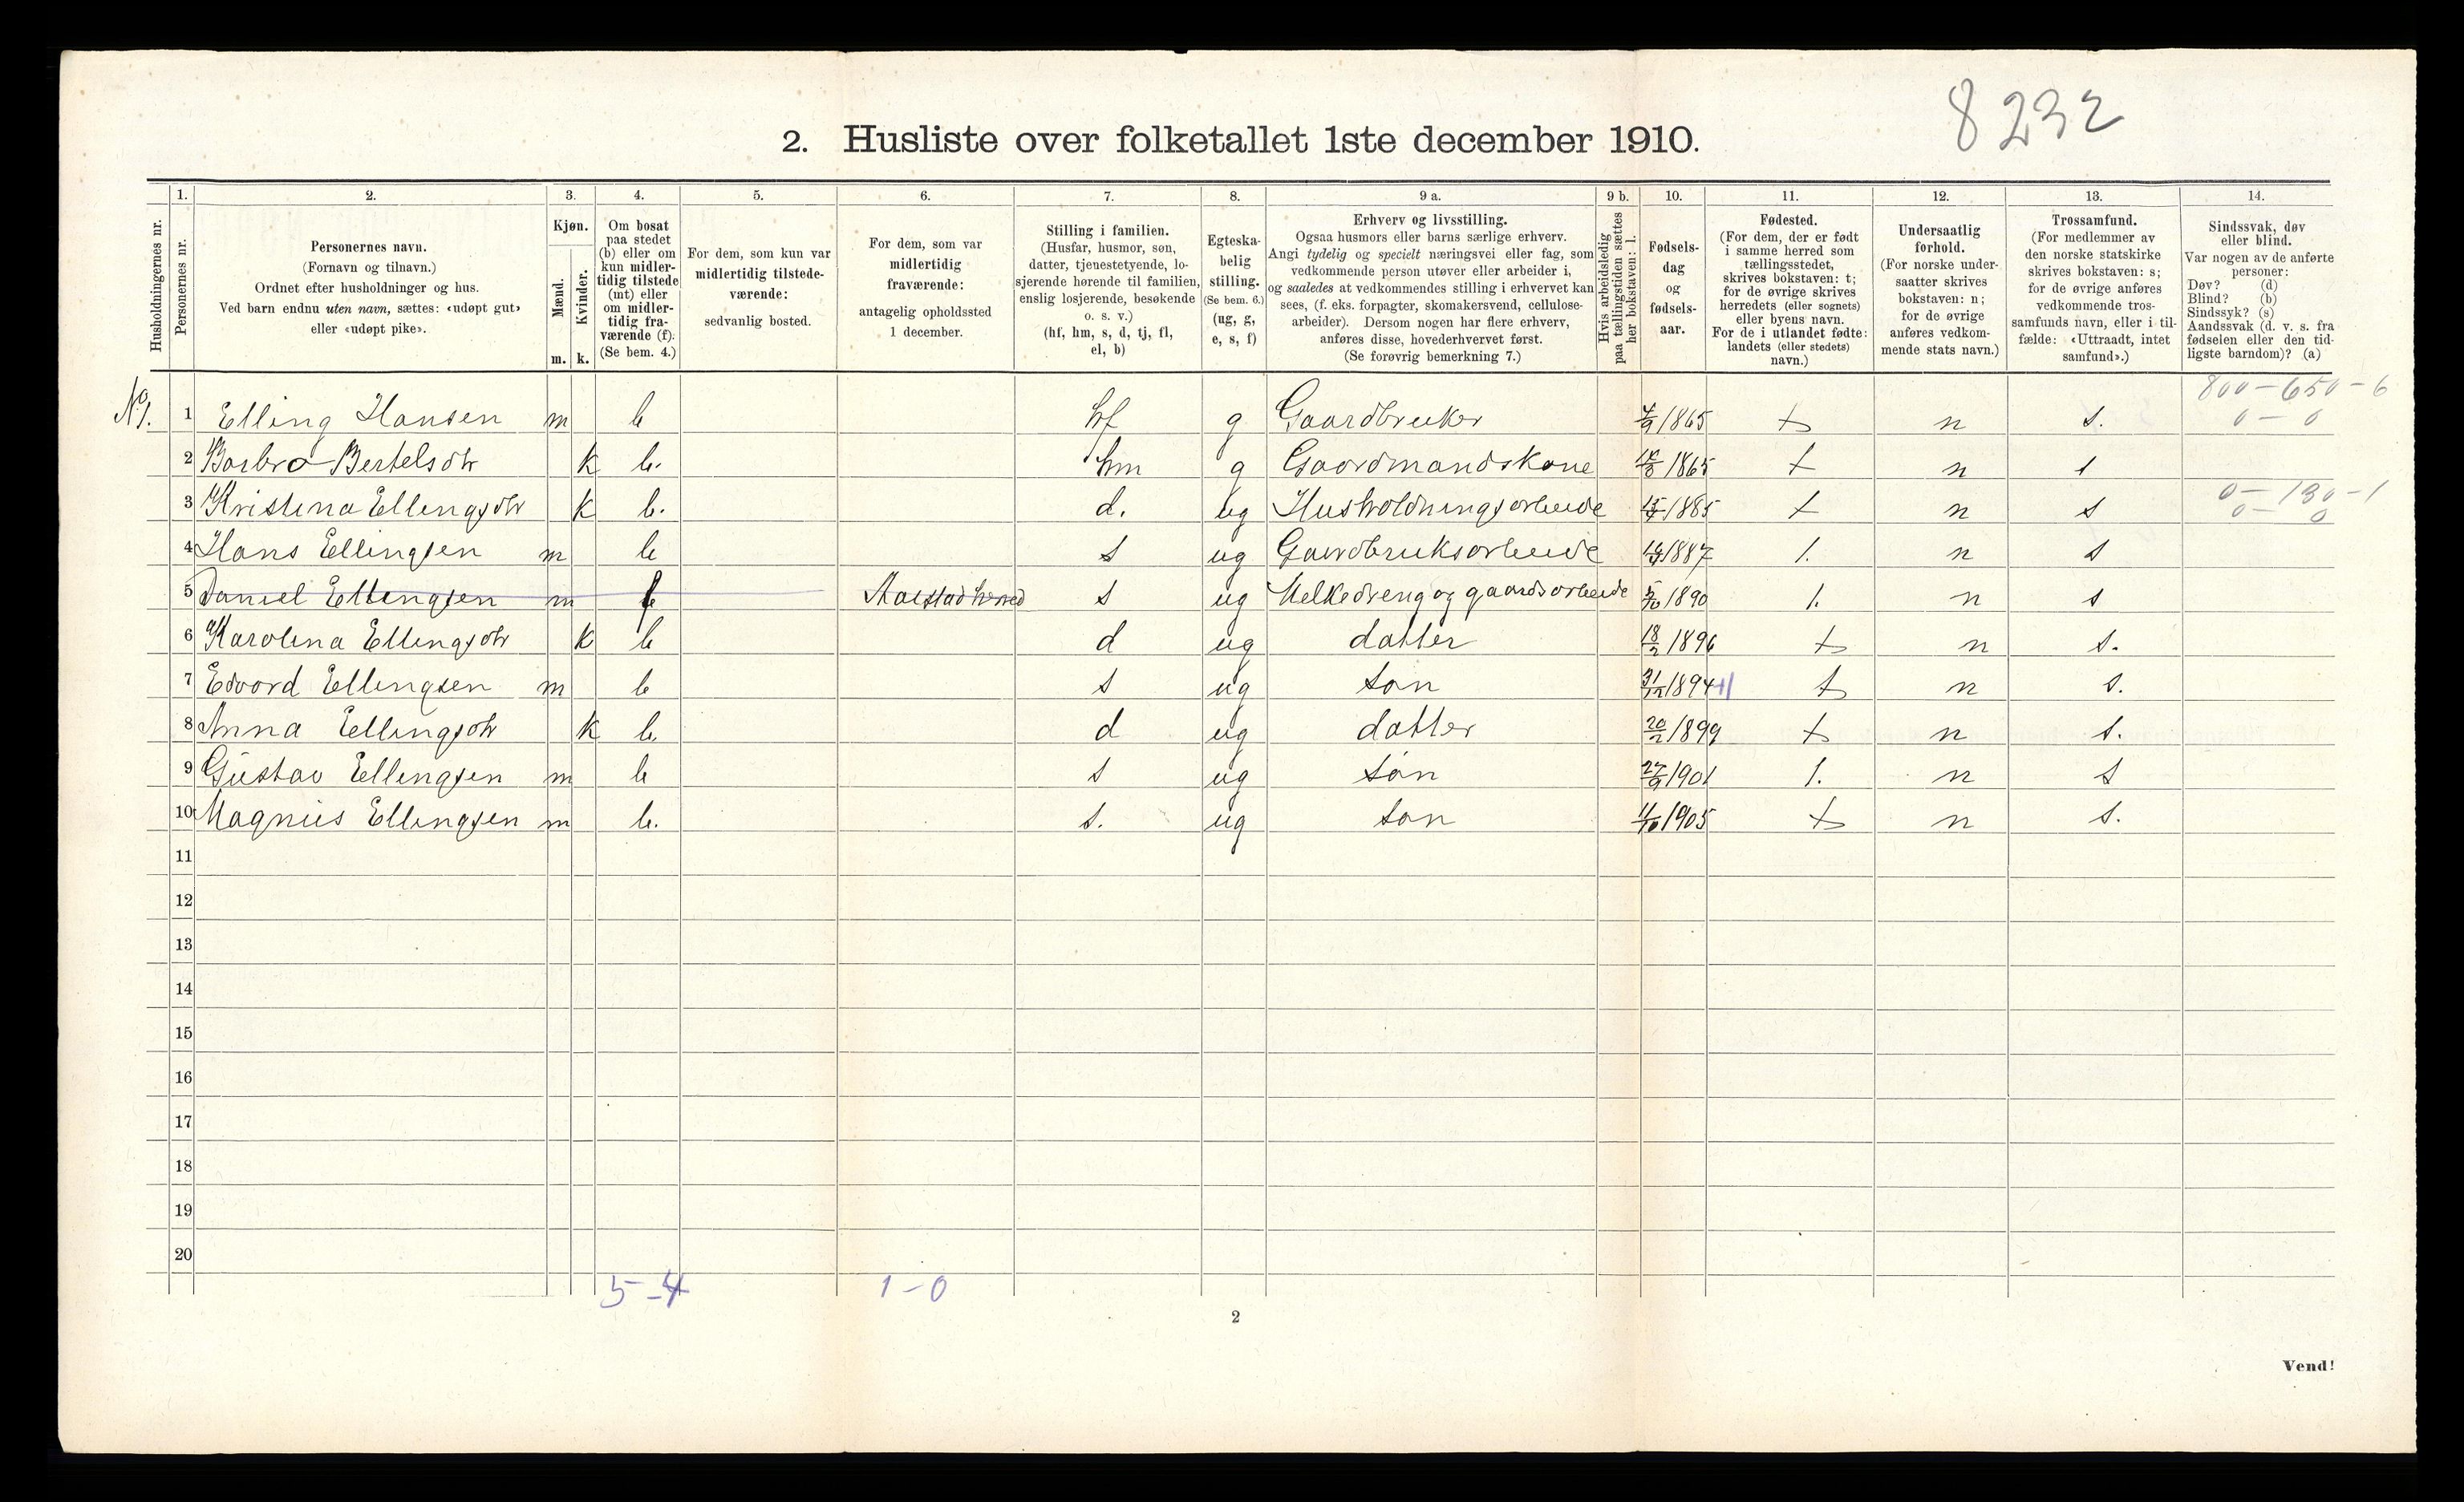 8232
2. Husliste over folketallet 1ste december 1910.
1. 2. 3. 4. 5. 6. 7. 8. 9 a. 9 b. 10. 11. 12. 13. 14.
Husholdningernes nr.
Personernes nr.
Personernes navn.
(Fornavn og tilnavn.)
Ordnet efter husholdninger og hus.
Ved barn endnu uten navn, sættes: «udøpt gut»
eller «udøpt pike».
Kjøn.
Mænd.
Kvinder.
m. k.
Om bosat
paa stedet
(b) eller om
kun midler-
tidig tilstede
(mt) eller
om midler-
tidig fra-
værende (f).
(Se bem. 4.)
For dem, som kun var
midlertidig tilstede-
værende:
sedvanlig bosted.
For dem, som var
midlertidig
fraværende:
antagelig opholdssted
1 december.
Stilling i familien.
(Husfar, husmor, søn,
datter, tjenestetyende, lo-
sjerende hørende til familien,
enslig losjerende, besøkende
o. s. v.)
(hf, hm, s, d, tj, fl,
el, b)
Egteska-
belig
stilling.
(Se bem. 6.)
(ug, g,
e, s, f)
Erhverv og livsstilling.
Ogsaa husmors eller barns særlige erhverv.
Angi tydelig og specielt næringsvei eller fag, som
vedkommende person utøver eller arbeider i,
og saaledes at vedkommendes stilling i erhvervet kan
sees, (f. eks. forpagter, skomakersvend, cellulose-
arbeider). Dersom nogen har flere erhverv,
anføres disse, hovederhvervet først.
(Se forøvrig bemerkning 7.)
Hvis arbeidsledig
paa tællingstiden sættes
her bokstaven: l.
Fødsels-
dag
og
fødsels-
aar.
Fødested.
(For dem, der er født
i samme herred som
tællingsstedet,
skrives bokstaven: t;
for de øvrige skrives
herredets (eller sognets)
eller byens navn.
For de i utlandet fødte:
landets (eller stedets)
navn.)
Undersaatlig
forhold.
(For norske under-
saatter skrives
bokstaven: n;
for de øvrige
anføres vedkom-
mende stats navn.)
Trossamfund.
(For medlemmer av
den norske statskirke
skrives bokstaven: s;
for de øvrige anføres
vedkommende tros-
samfunds navn, eller i til-
fælde: «Uttraadt, intet
samfund».)
Sindssvak, døv
eller blind.
Var nogen av de anførte
personer:
Døv? (d)
Blind? (b)
Sindssyk? (s)
Aandssvak (d. v. s. fra
fødselen eller den tid-
ligste barndom)? (a)
800-650-6
No 1. 1 Elling Hansen m b hf g Gaardbruker 4/9 1865 t n s. 0-0
2 Barbro Bertelsdtr k b. hm g Gaardmandskone 1865 t n s
0-130-1
3 Kristina Ellingsdtr k b. d. ug Husholdningsarbeide 1885 t n s 0-0
4 Hans Ellingsen m b s ug Gardbruksarbeide 1887 t. n s
5 Daniel Ellingsen m f s ug Melkedreng og gaardsarbeide 5/10 1890 t. n s
6 Karolina Ellingsdtr k b d ug datter 18/2 1896 t n s.
7 Edvard Ellingsen m b s ug søn 31/12 1894 t n s.
8 Anna Ellingsdtr k b. d ug datter 1899 t n s.
9 Gustav Ellingsen m b s ug søn 27/9 1901 t. n s
10 Magnus Ellingsen m b. s. ug søn 11/10 1905 t n s.
11
12
13
14
15
16
17
18
19
20
5-4 1-0
2
Vend!